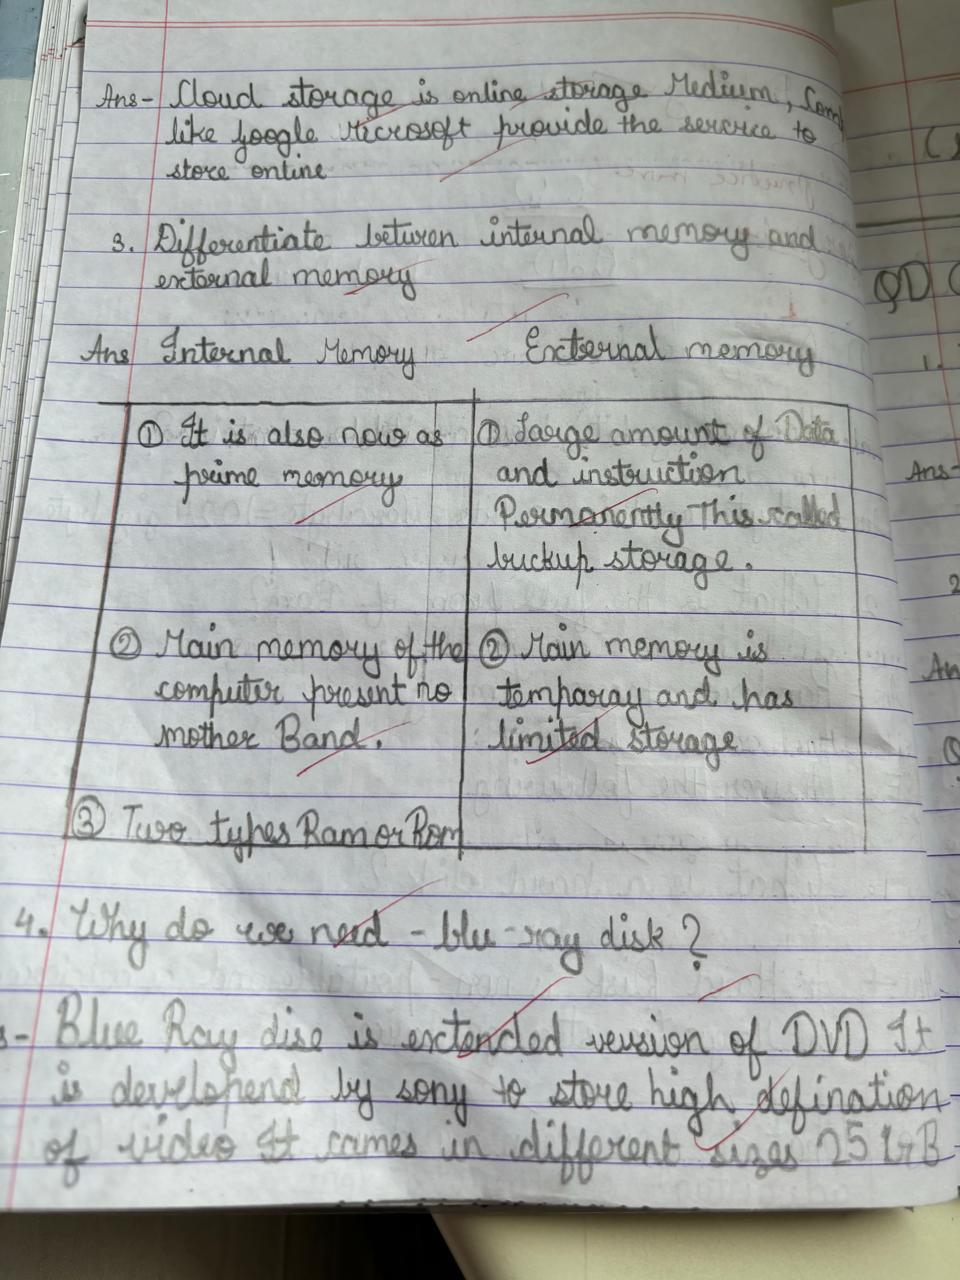 Ans- Cloud storage is online storage Medium,
like google Microsoft provide the sercvice to
store online
3. Differentiate betwen internal memory and
external memory
Ans Internal Memory External memory
① It is also now as
prime memory
① Large amount of Data
and instruction
Permanently This called
buckup storage.
② Main memory of the
computer present no
mother Band.
② Main memory is
temparay and has
limited storage
③ Two types Ram or Rom
4. Why do we need - blu-ray disk?
Blue Ray disc is extended version of DVD It
is develepend by sony to store high defination
of video It cames in different sizes 25 GB
QD (
1.
Ans-
2
An